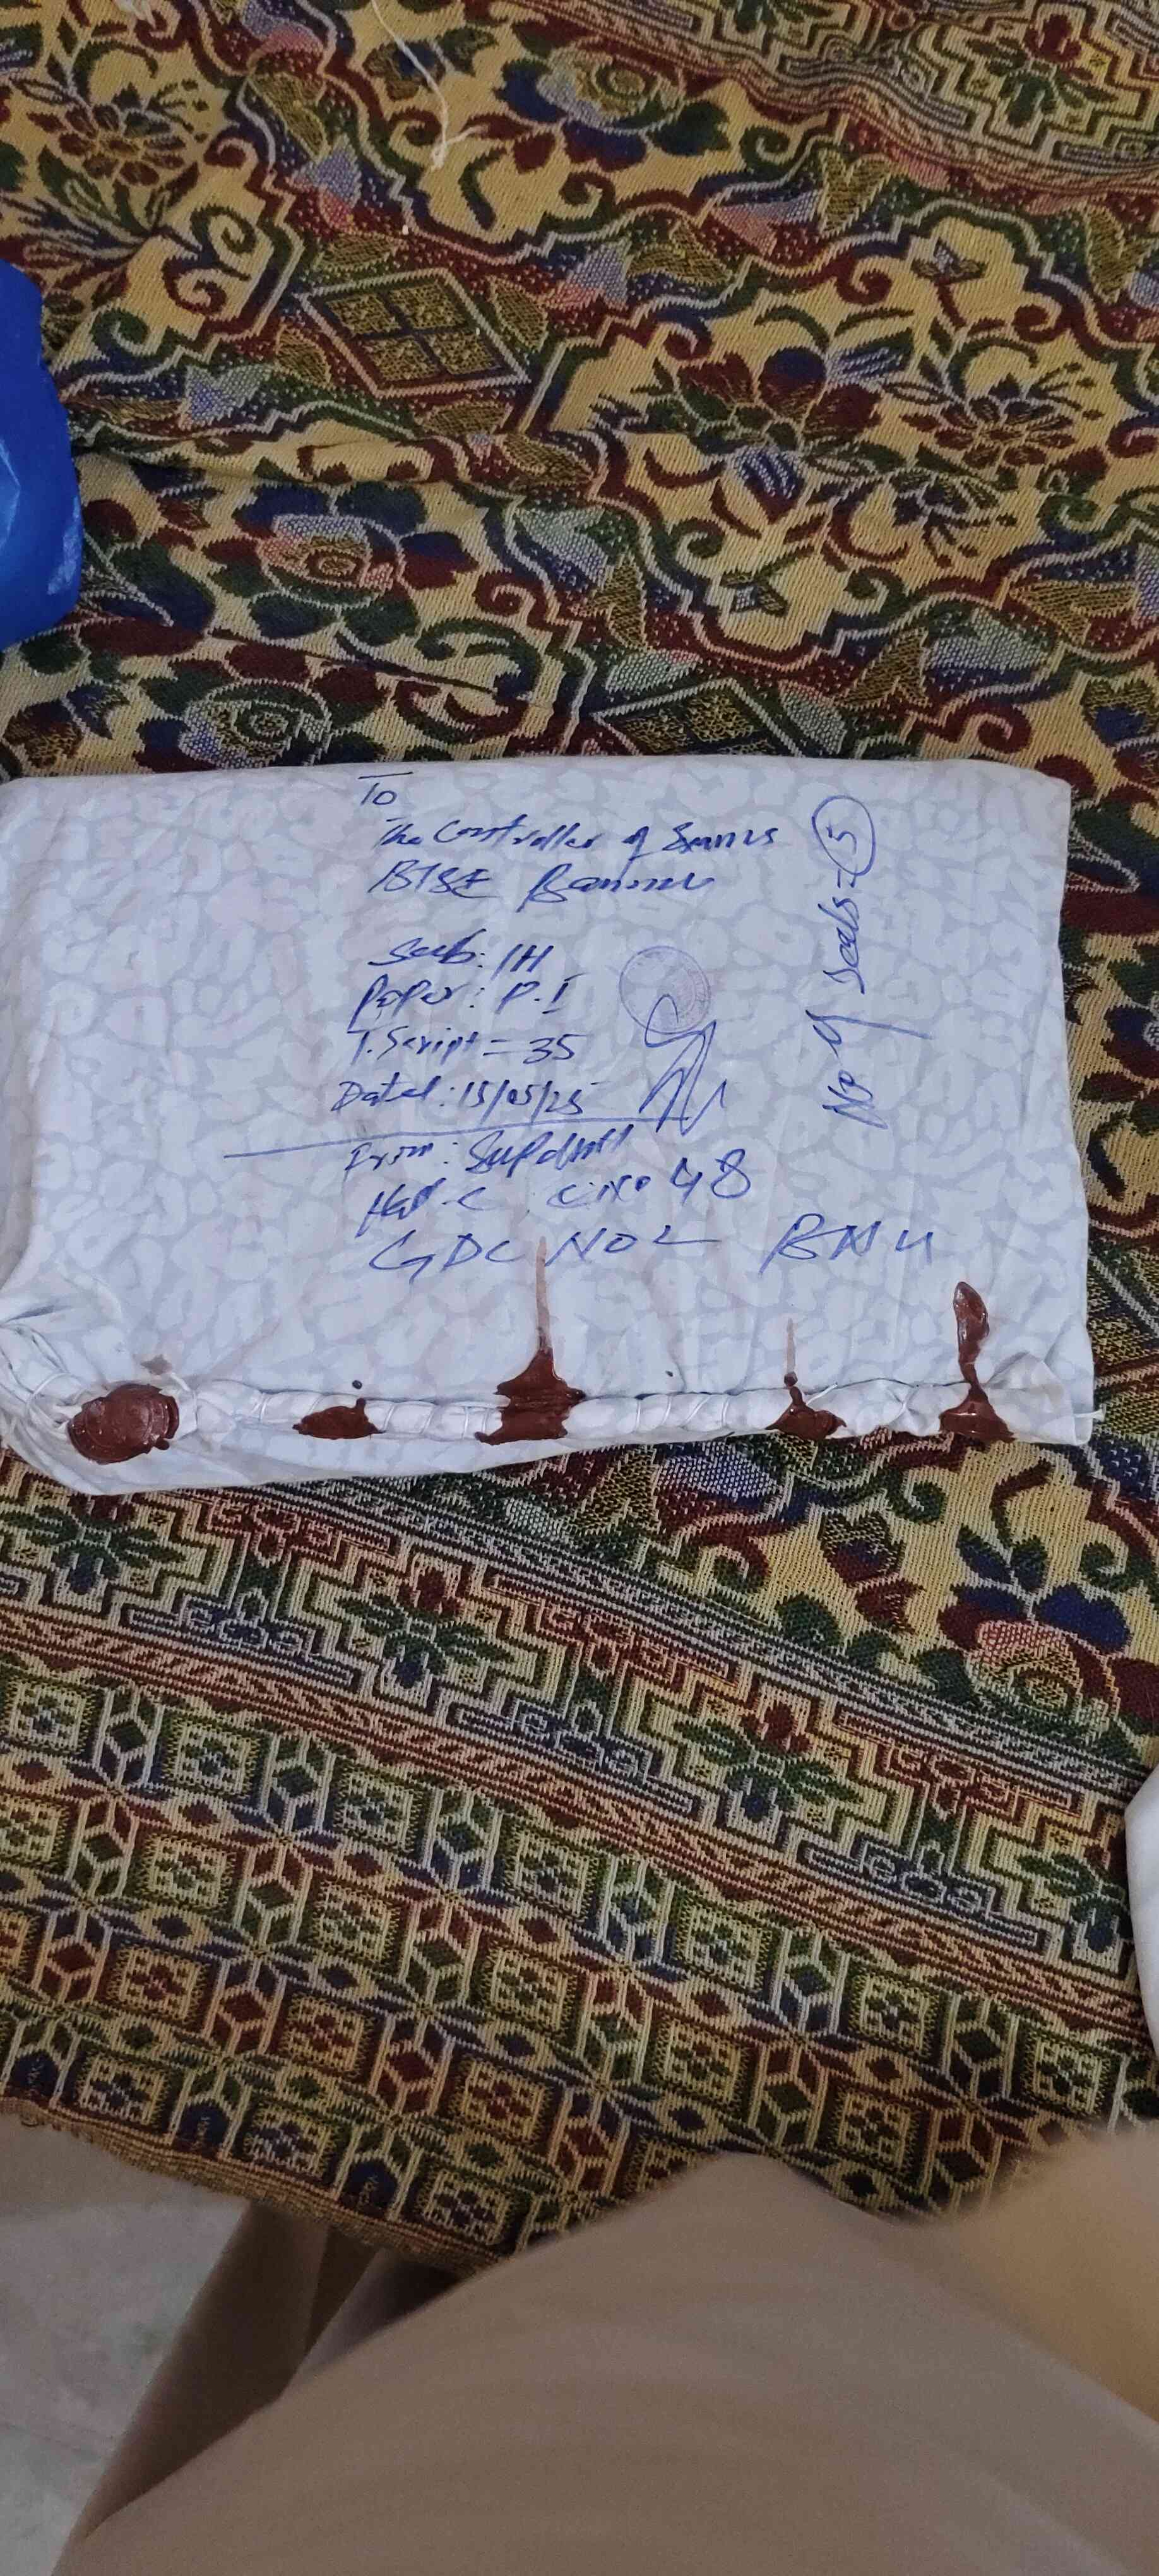 To
The Controller of Exams
BISE Bannu
Sub: IH
Paper: P.I
T. Script = 35
Dated: 15/05/25
From: Supdtt
Hall-C C.No 48
GDC NO 2 BNU
No of Seals = 5